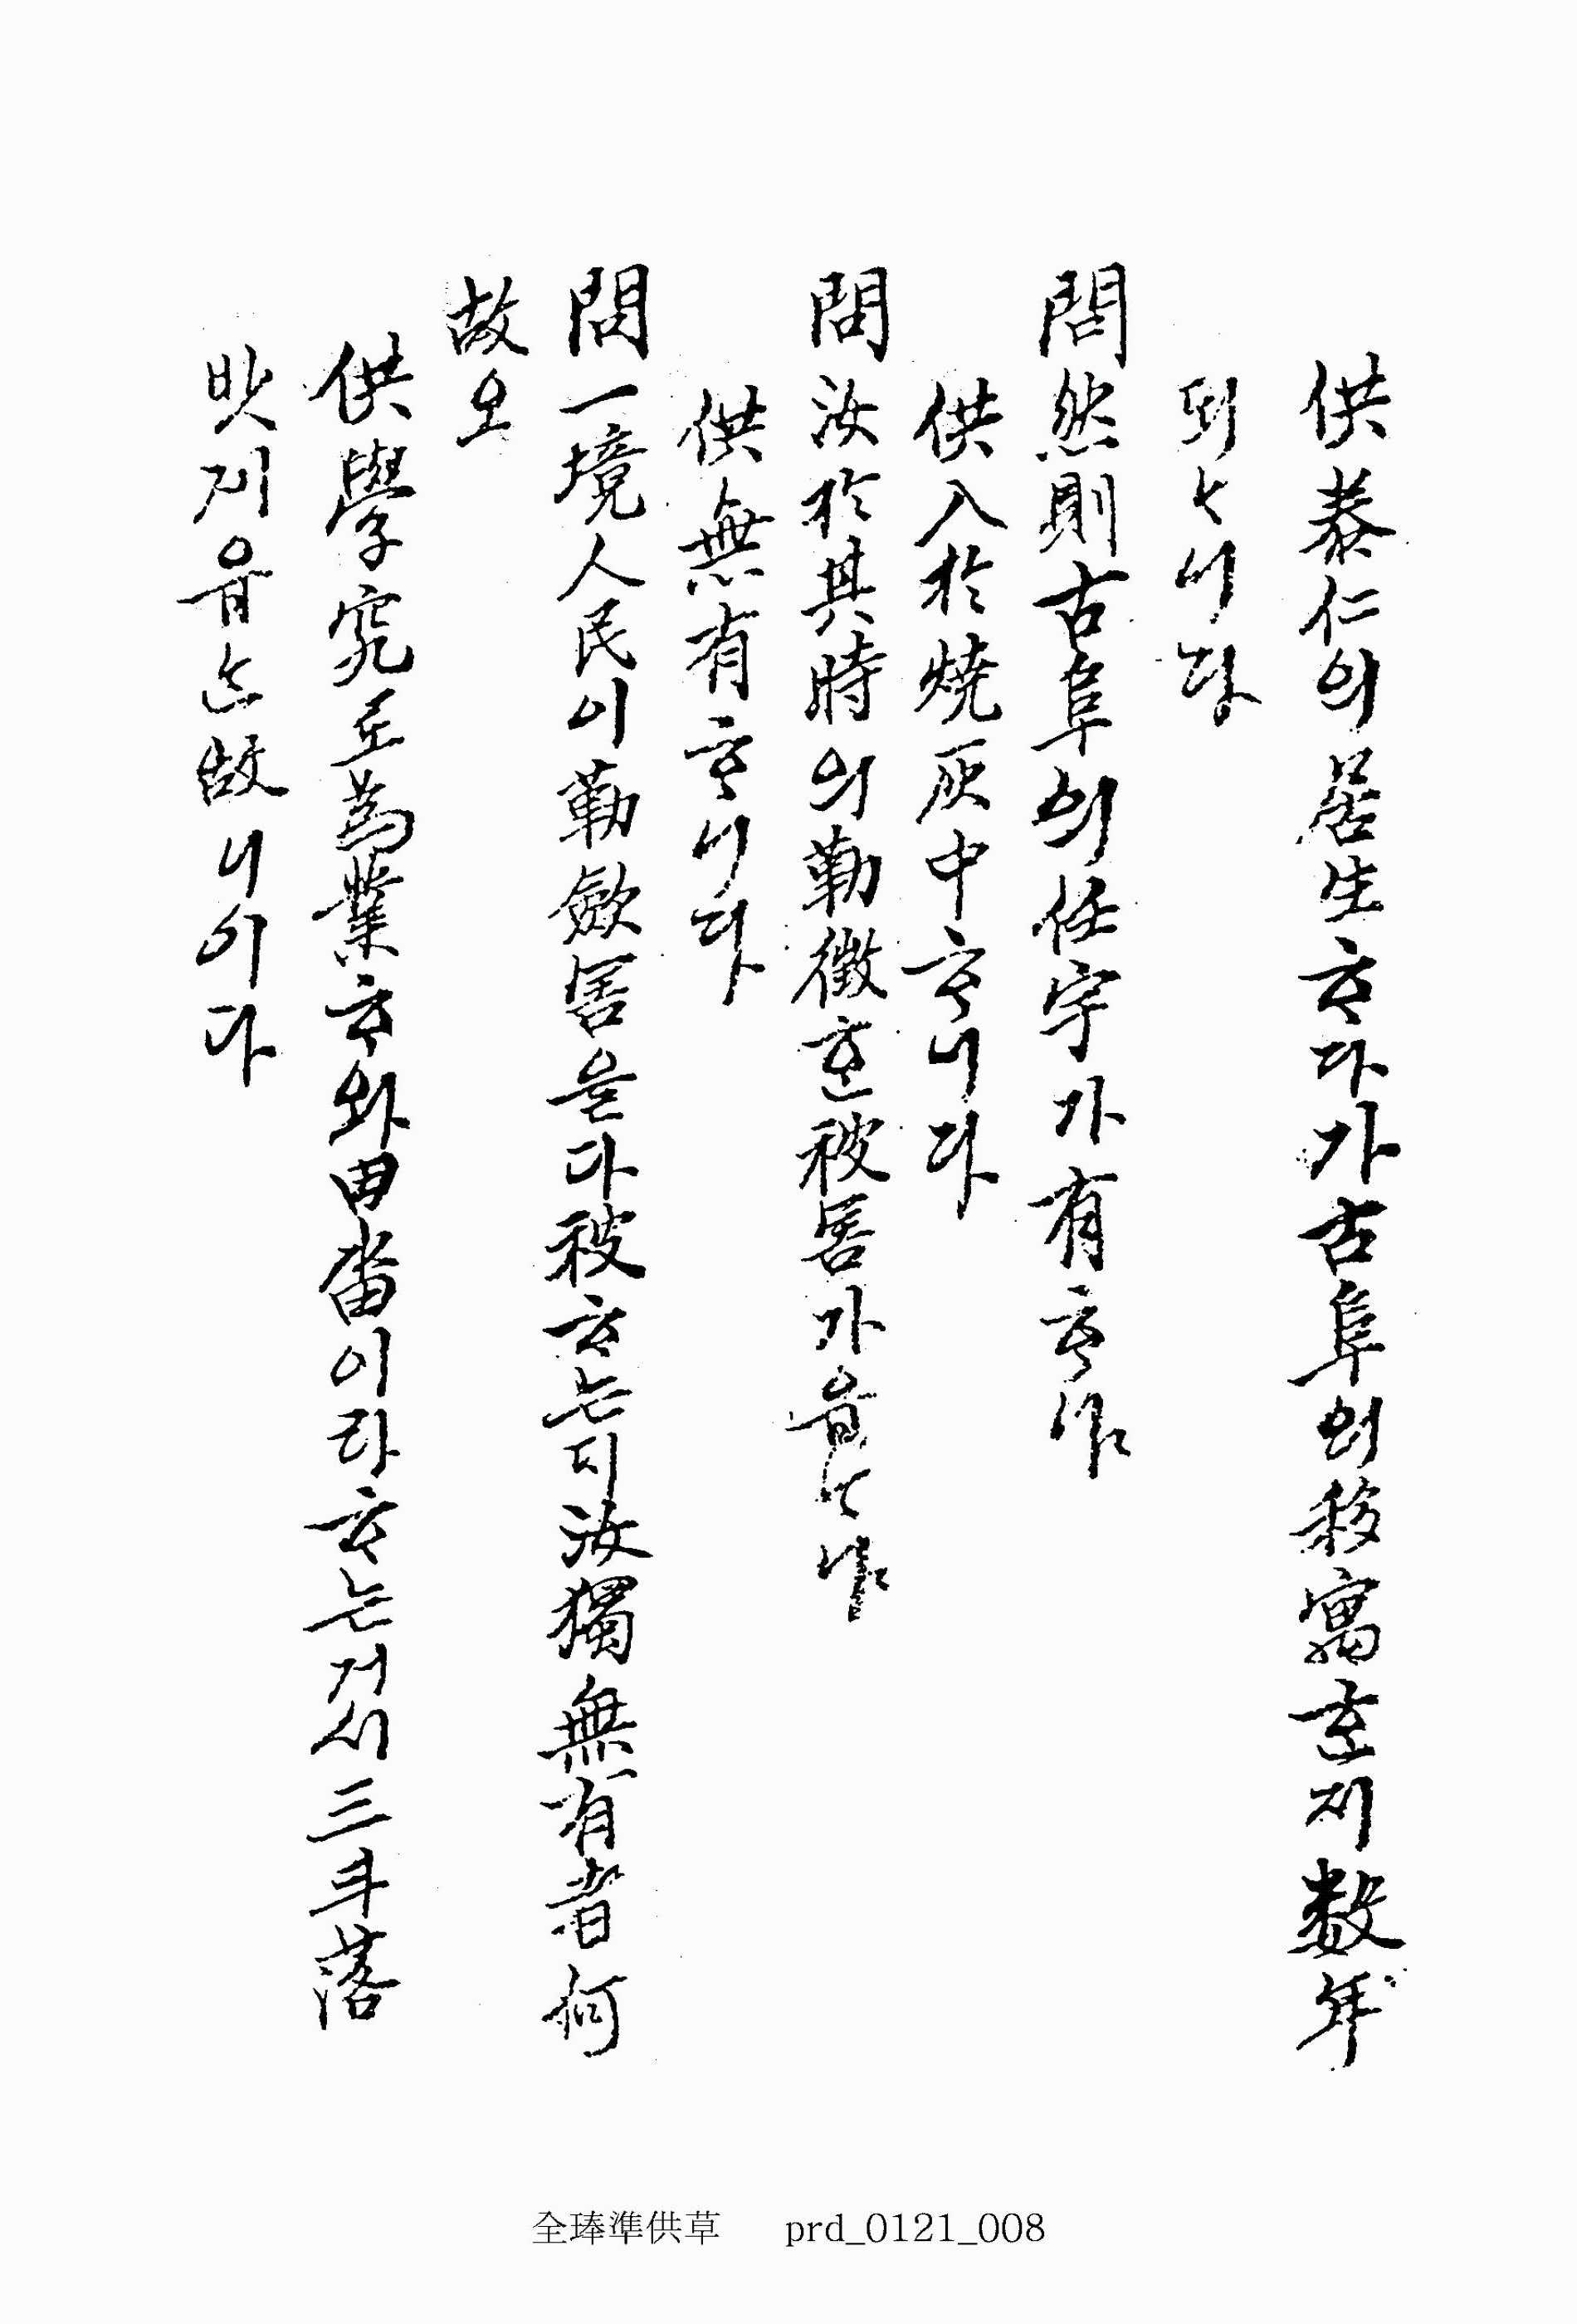 供 泰仁의 居生ᄒᆞ다가 古阜의 移寓ᄒᆞᆫ지 數年
되ᄂᆞ니다
問 然則 古阜의 任宇가 有ᄒᆞ냐
供 入於燒灰中ᄒᆞ니다
問 汝於其時의 勒徵ᄒᆞᆫ 被害가 읍ᄂᆞ냐
供 無有ᄒᆞ니다
問 一境人民이 勒斂害을 다 被ᄒᆞ는디 汝獨無有者何
故오
供 學究로 爲業ᄒᆞ와 田畓이라 ᄒᆞ는 거시 三斗落
밧긔 읍는 故니이다
全琫準供草 prd_0121_008